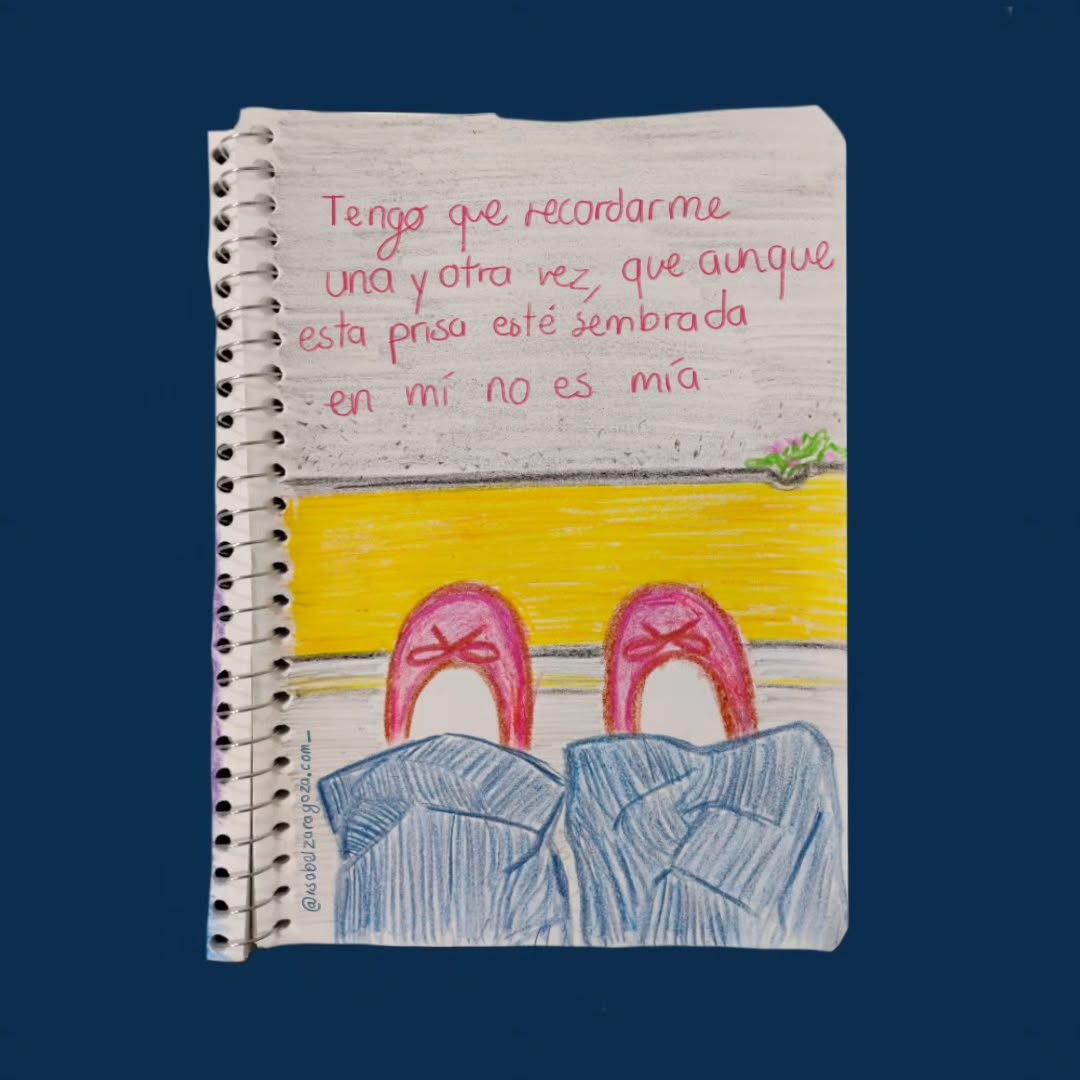 Tengo que recordarme
una y otra vez, que aunque
esta prisa esté sembrada
en mí no es mía
@isabelzaragoza.com_